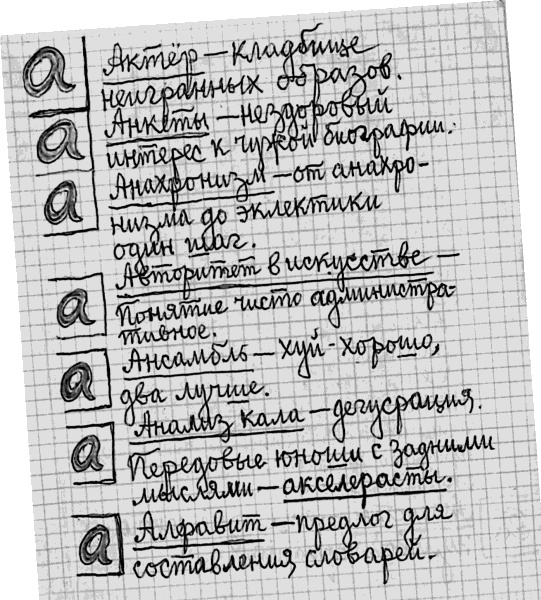 а Актёр – кладбище
неигранных образов.
а Анкеты – нездоровый
интерес к чужой биографии.
а Анахронизм – от анахро-
низма до эклектики
один шаг.
а Авторитет в искусстве –
Понятие чисто администра-
тивное.
а Ансамбль – хуй – хорошо,
два лучше.
а Анализ кала – дегусрация.
Передовые юноши с задними
мыслями – акселерасты.
а Алфавит – предлог для
составления словарей.